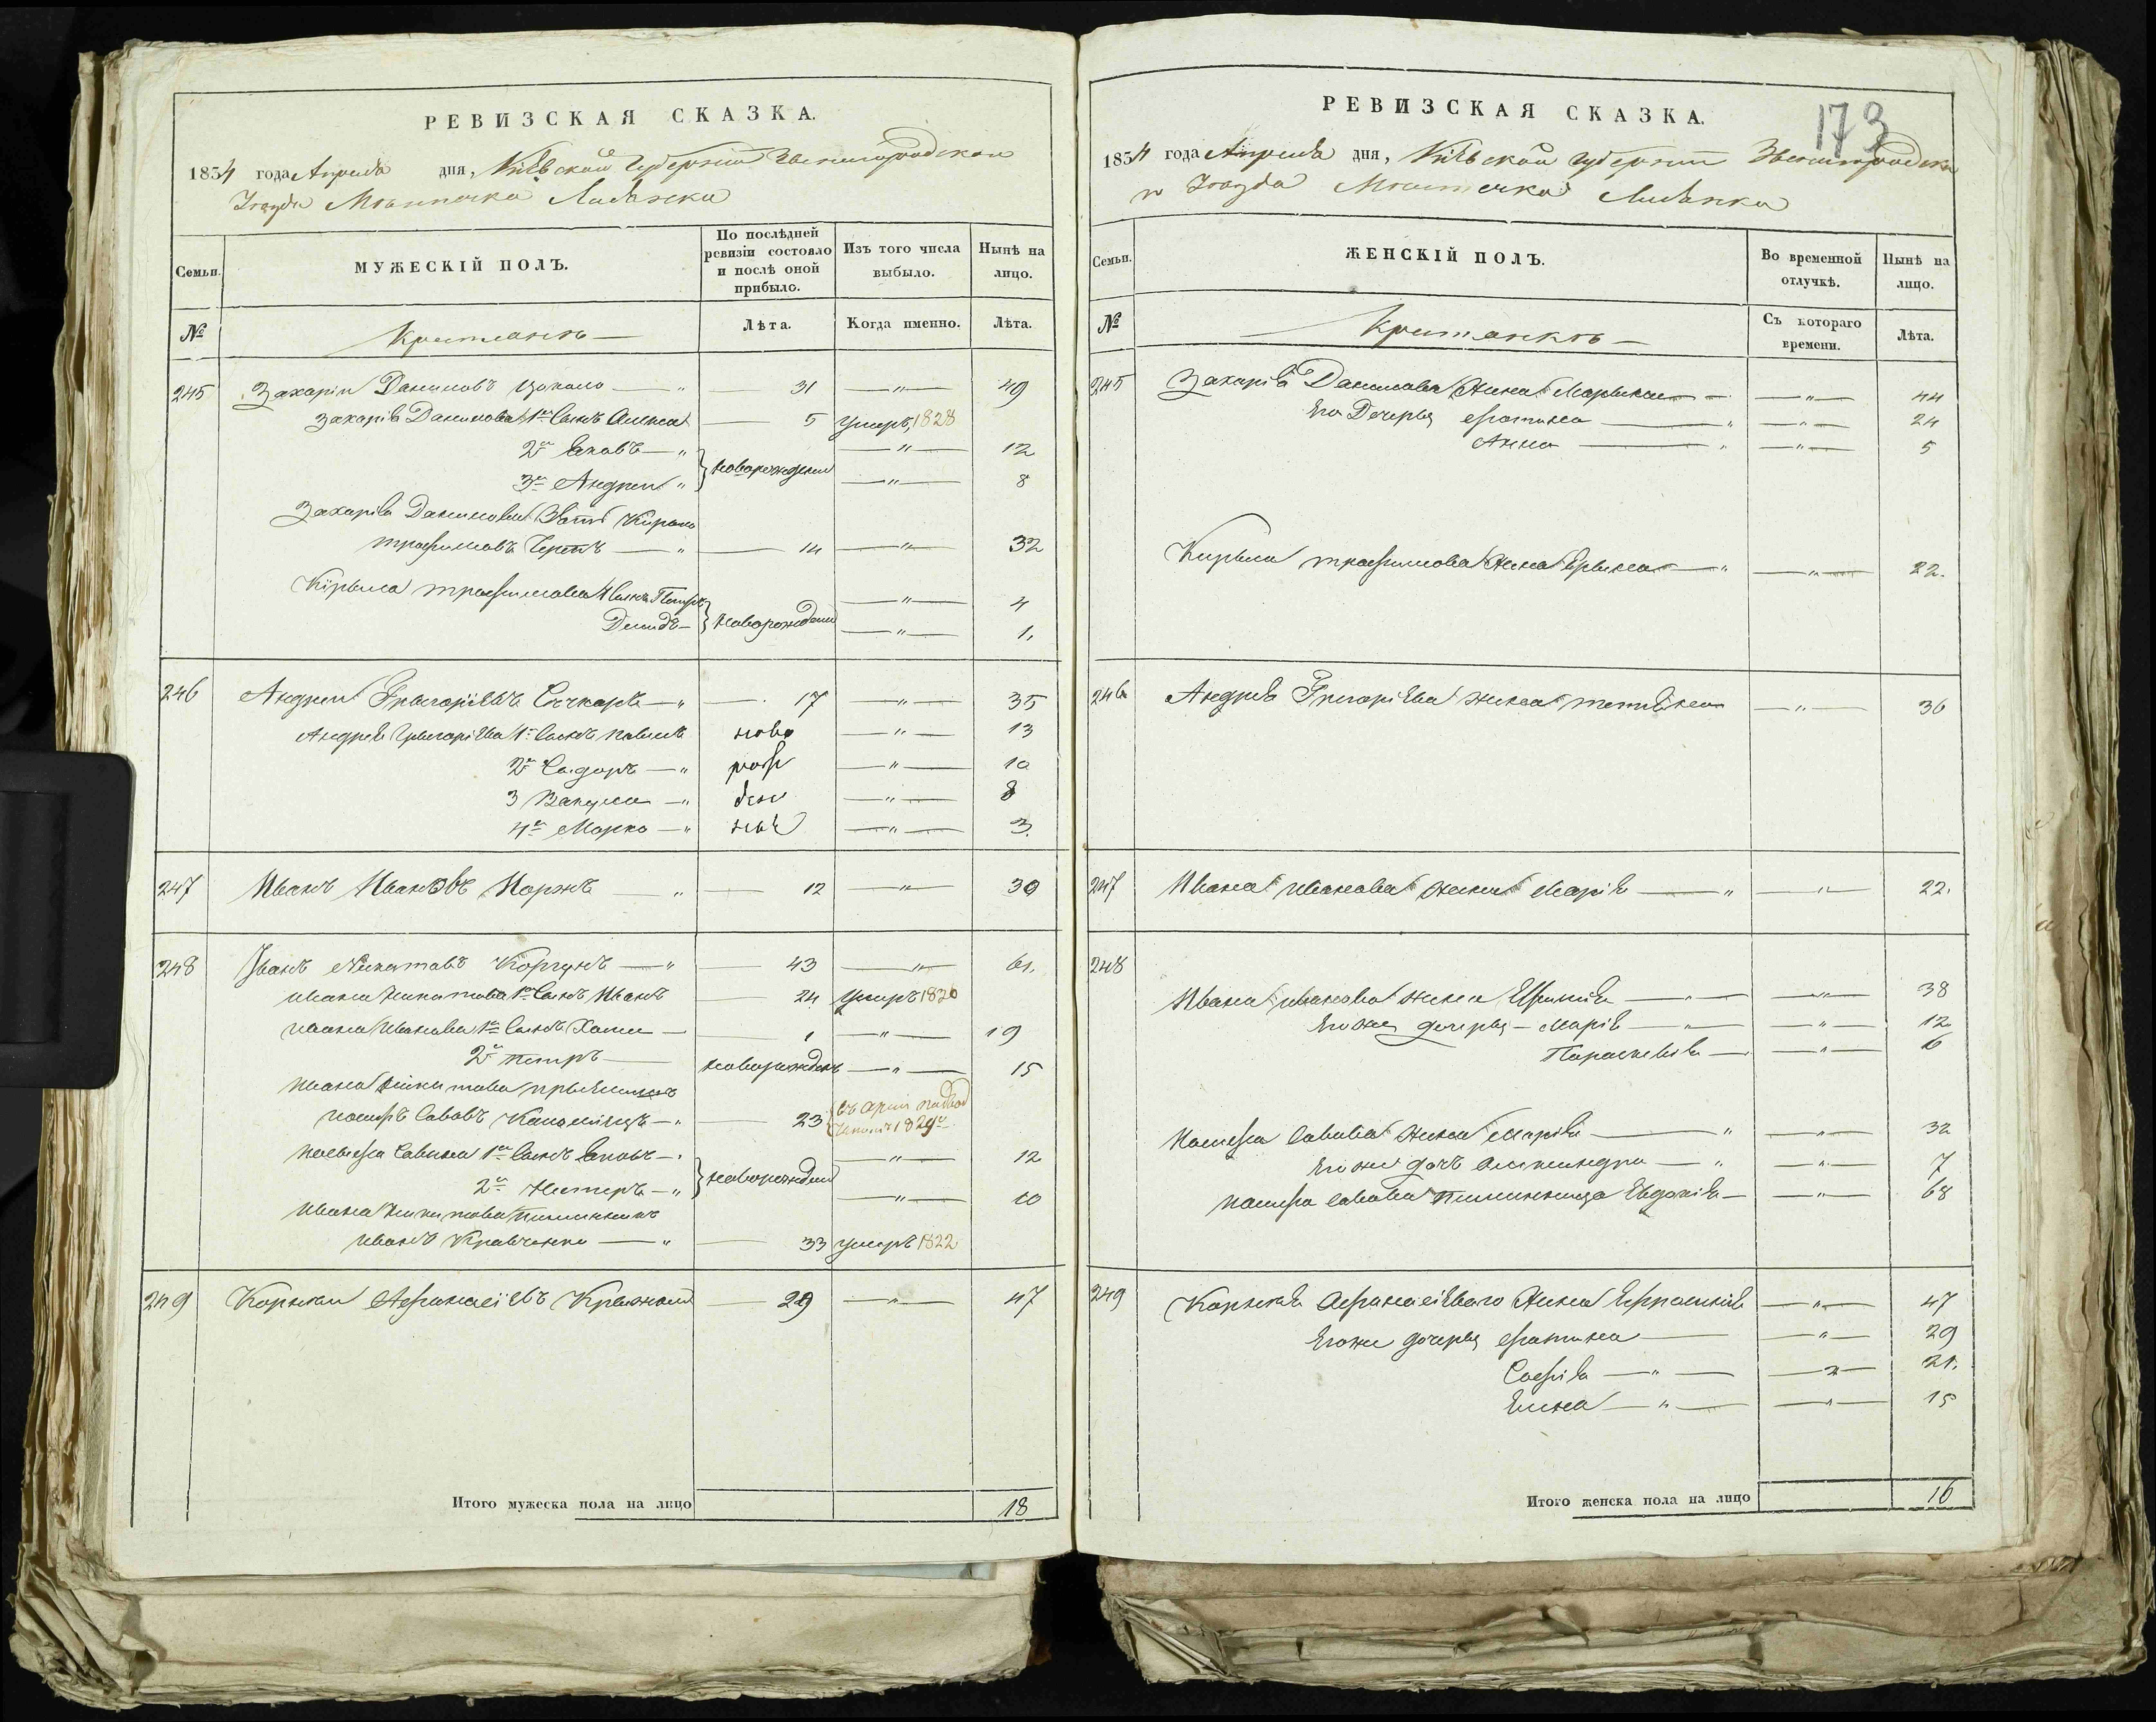 РЕВИЗСКАЯ СКАЗКА.
1834 года Апреля дня, Кіѣвской Губерніи Звенигородскои
Уезда Мѣстечка Лисянки
Семьи.
МУЖЕСКІЙ ПОЛЪ.
По послѣдней ревизіи состояло и послѣ оной прибыло.
Изъ того числа выбыло.
Нынѣ на лицо.
№
Крестьянъ
Лѣта.
Когда именно.
Лѣта.
245 Захарій Даниловъ Цокало — " — 31 — " — 49
Захарія Данилова 1й Сынъ — 5 умеръ, 1828
2й Яковъ — " — " — 12
новорождени
3й Андрей " — " — 8
Захарія Данилова Зять Кирило
Трофимовъ — " — 14 — " — 32
Кірыла Трофимова Сынъ Петръ — " — 4
новорождени
Демидъ — — " — 1.
246 Андрей Григоріевъ — " — 17 — " — 35
Андрея Григоріева 1й Сынъ Павелъ ново — " — 13
2й Сидоръ — " рож — " — 10
3 Вакула — " дён — " — 8
4й Марко — " ные — " — 3.
247 Иванъ Ивановъ Коржъ " — 12 — " — 30
248 Іванъ Никитовъ Коргунъ — " — 43 — " — 61.
Ивана Никитова 1й Сынъ Иванъ — 24 умеръ 1826
Ивана Иванова 1й Сынъ Хома — — 1 — " — 19
2й Петръ — новорожденъ — " — 15
Ивана Никитова
Іосифъ Савовъ — " — 23
1829го
Іосыфа Савина 1й Сынъ Яковъ — " — " — 12
новорождени
2й Нестеръ — " — " — 10
Ивана Никитова племянникъ
Иванъ Кравченко — " — 33 умеръ 1822
249 Корнѣй Афанасіевъ — 29 — " — 47
Итого мужеска пола на лицо 18
173
РЕВИЗСКАЯ СКАЗКА.
1834 года Апреля дня, Кіѣвской Губерніи Звенигородска
го Уезда Мѣстечка Лисянки
Семьи.
ЖЕНСКІЙ ПОЛЪ.
Во временной отлучкѣ.
Нынѣ на лицо.
№
Крестьянкъ
Съ котораго времени.
Лѣта.
245 Захарія Данилова Жена Марьяна — — " — 44
Его Дочерья Фатина — " — " — 24
Анна — " — " — 5
Кирыла Трофимова Жена Ірына — " — " — 22.
246 Андрея Григоріева жена Татіяна — " — 36
247 Ивана Иванова жена Марія — " — " — 22.
248
Ивана Иванова жена Ефимія — " — — " — 38
Его же дочерья — Марія — " — — " — 12
Параскевія — — " — 6
Іосифа Савова Жена Марія — " — " — 32
Его же дочь Александра — " — " — 7
Іосифа Савова племянница Евдокія — — " — 68
249 Корнѣя Афанасіевого Жена Ефросинія — " — 47
Его же дочерья Фатина — — " — 29
Софія — " — — " — 21.
Елена — " — — " — 15
Итого женска пола на лицо 16